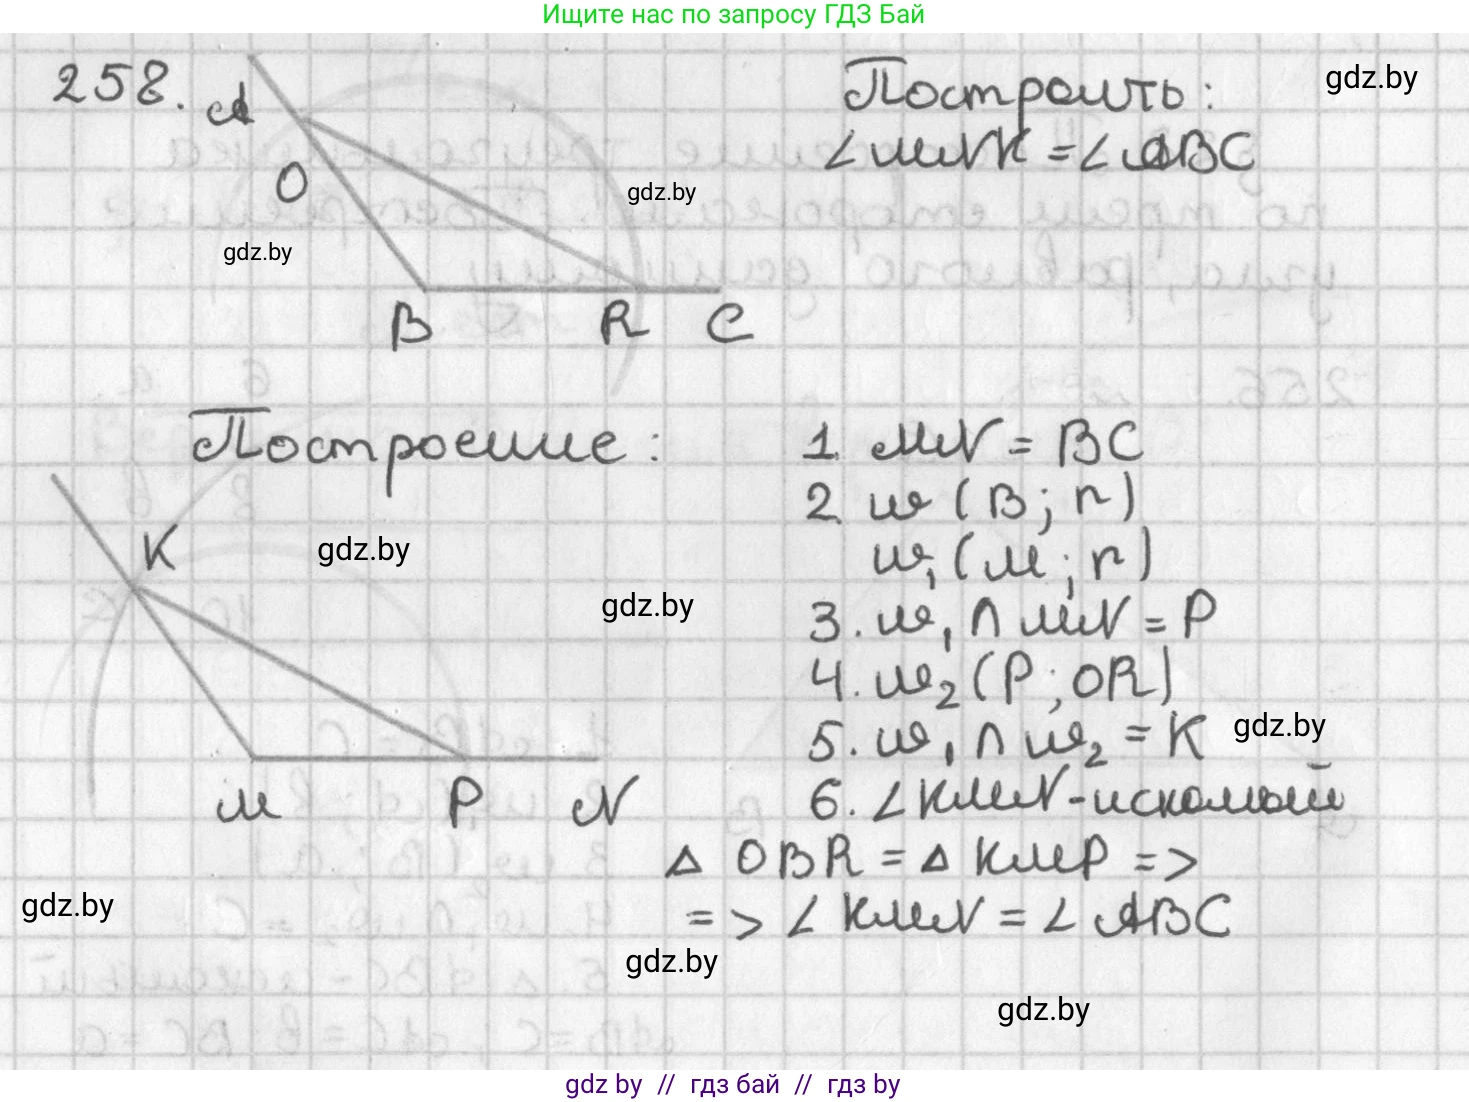 Ищите нас по запросу ГДЗ Бай
258.
A
O
B
R
C
Построить:
∠MNK = ∠ABC
gdz.by
gdz.by
gdz.by
Построение:
K
M
P
N
1. MN = BC
2. ω (B; r)
ω₁ (M; r)
3. ω₁ ∩ MN = P
4. ω₂ (P; OR)
5. ω₁ ∩ ω₂ = K
6. ∠KMN - искомый
△ OBR = △ KMP =>
=> ∠KMN = ∠ABC
gdz.by
gdz.by
gdz.by
gdz.by
gdz.by
gdz.by
gdz by // гдз бай // гдз by